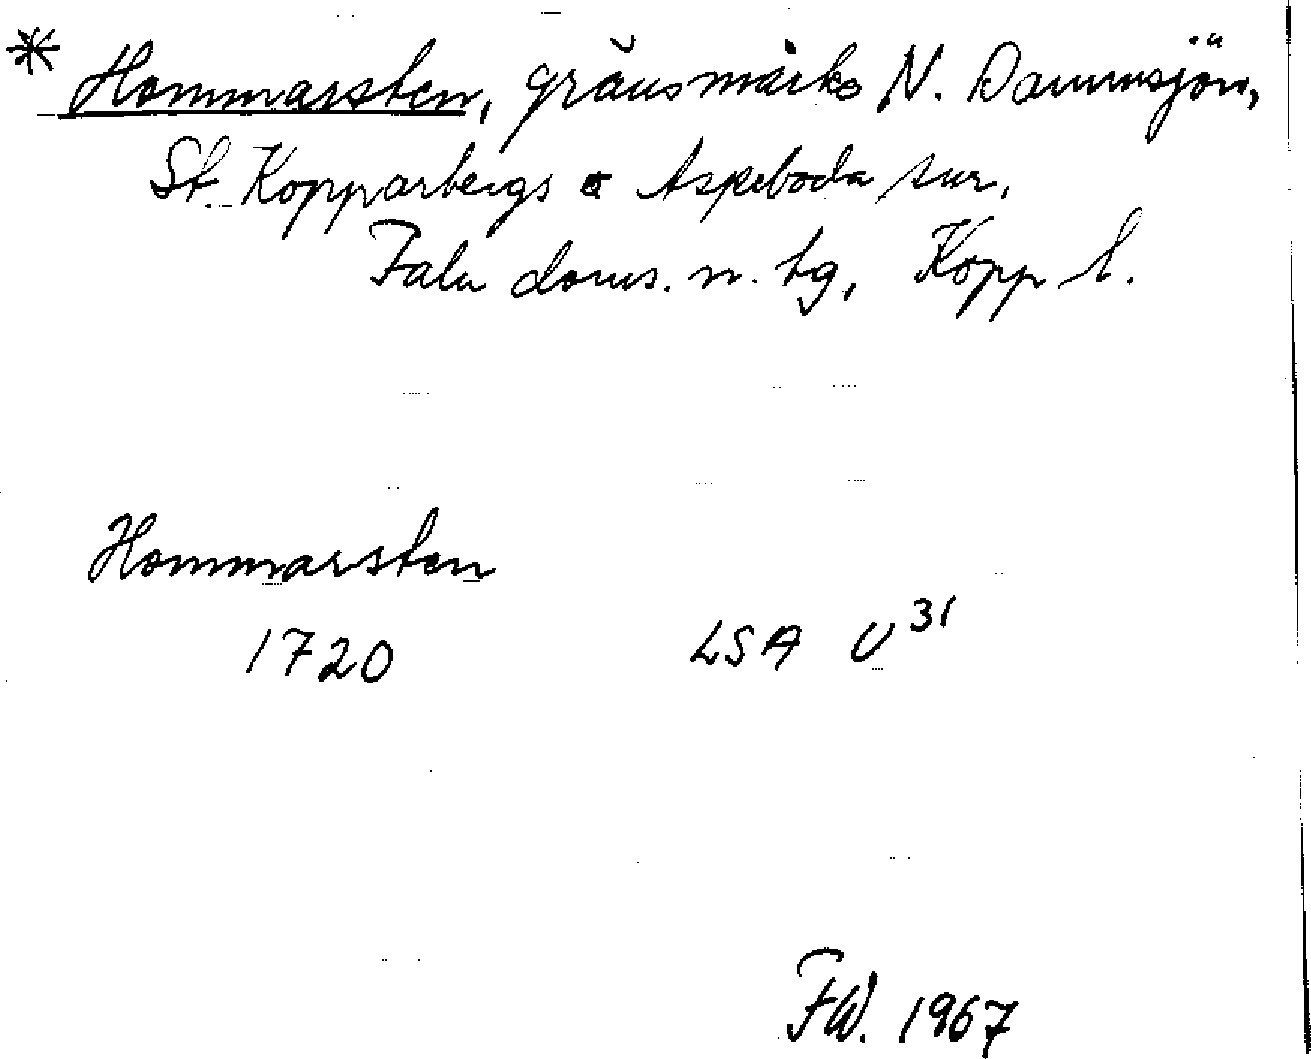 * Hommarsten, gränsmärke N. Dammsjön,
St. Kopparbergs o Aspeboda snr,
Falu doms. n. tg, Kopp l.
Hommarsten
1720 LSA U 31
FW. 1967